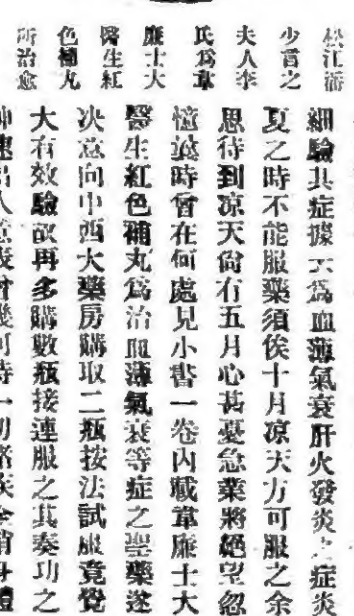 松江潘
少言之
夫人李
氏爲韋
廉士大
醫生紅
色補丸
所治愈
細驗其症據云爲血薄氣衰肝火發炎之症炎
夏之時不能服藥須俟十月凉天方可服之余
思待到凉天尙有五月心甚憂急藥將絕望忽
憶彼時曾在何處見小書一卷內載韋廉士大
醫生紅色補丸爲治血薄氣衰等症之聖藥遂
决意向中西大藥房購取二瓶按法試服竟覺
大有效驗故再多購數瓶接連服之其奏功之
神速出人意